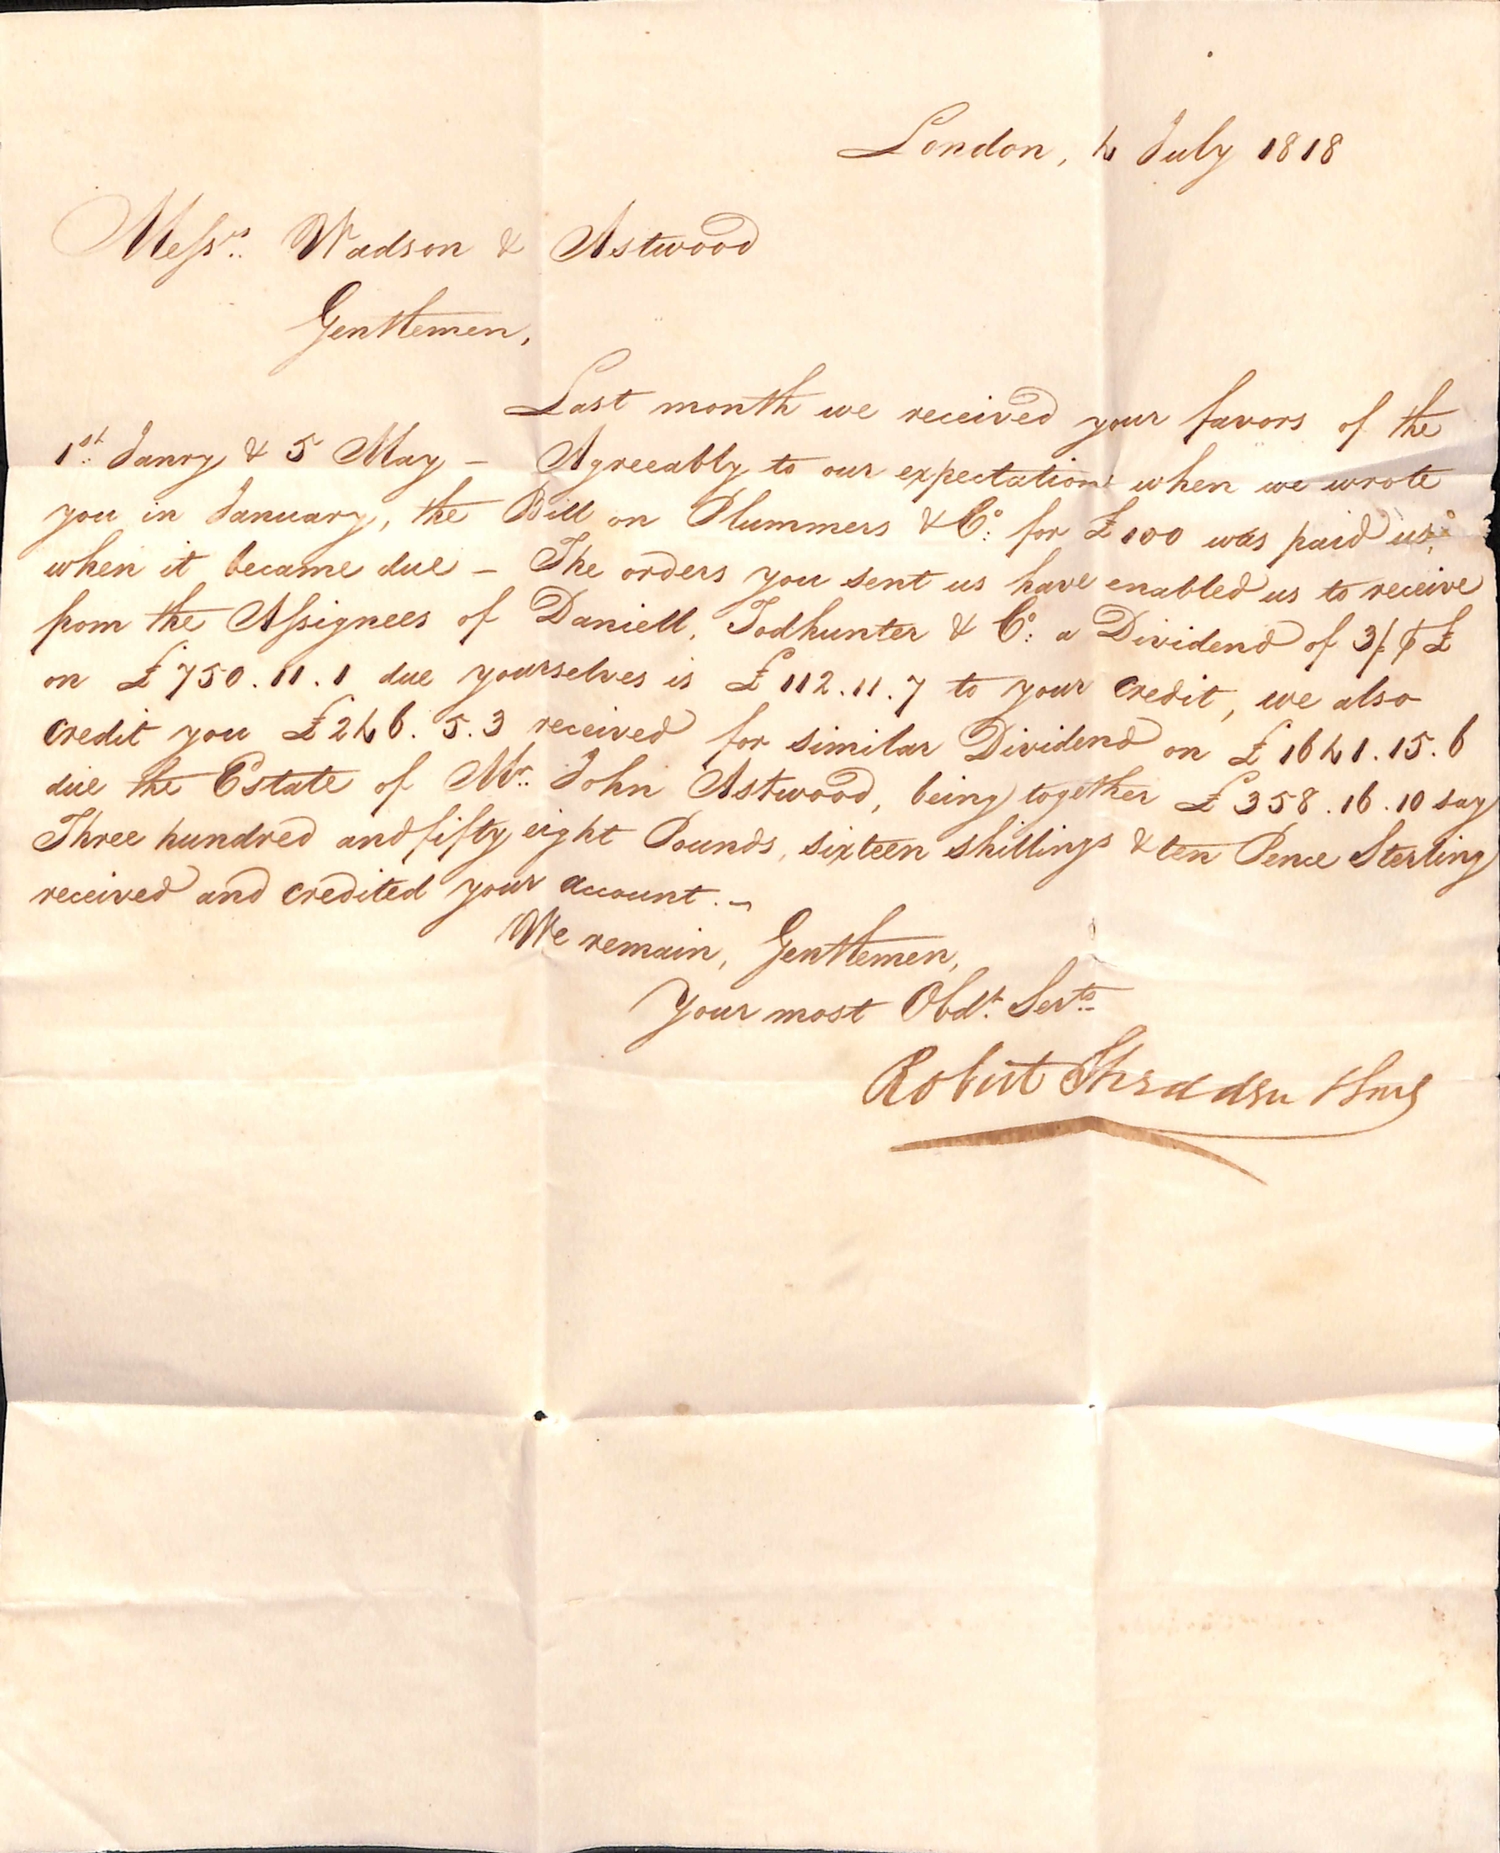 London, 4 July 1818
Messrs. Wadson & Astwood
Gentlemen,
Last month we received your favors of the
1st. Janry & 5 May – Agreeably to our expectation when we wrote
you in January, the Bill on Plummers & Co: for £100 was paid us
when it became due – The orders you sent us have enabled us to receive
from the Assignees of Daniell, Todhunter & Co: a Dividend of 3/ ⅌ £
on £750.11.1 due yourselves is £112.11.7 to your credit, we also
credit you £246.5.3 received for similar Dividend on £1641.15.6
due the Estate of Mr. John Astwood, being together £358.16.10 say
Three hundred and fifty eight Pounds, sixteen shillings & ten Pence Sterling
received and credited your account. –
We remain, Gentlemen,
Your most Obdt. Serts.
Robert Shedden &